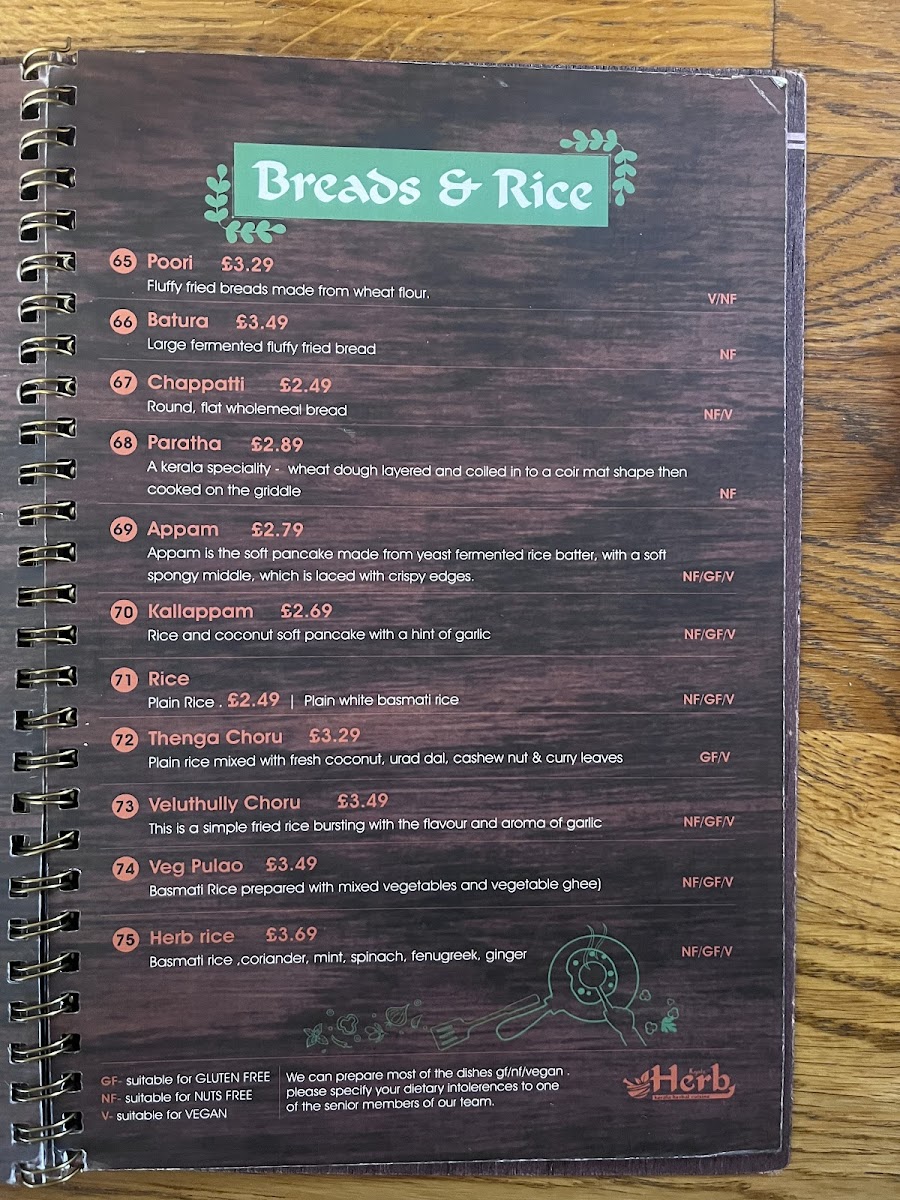 Breads & Rice
65 Poori £3.29
Fluffy fried breads made from wheat flour.
V/NF
66 Batura £3.49
Large fermented fluffy fried bread
NF
67 Chappatti £2.49
Round, flat wholemeal bread
NF/V
68 Paratha £2.89
A kerala speciality - wheat dough layered and coiled in to a coir mat shape then
cooked on the griddle
NF
69 Appam £2.79
Appam is the soft pancake made from yeast fermented rice batter, with a soft
spongy middle, which is laced with crispy edges.
NF/GF/V
70 Kallappam £2.69
Rice and coconut soft pancake with a hint of garlic
NF/GF/V
71 Rice
Plain Rice . £2.49 | Plain white basmati rice
NF/GF/V
72 Thenga Choru £3.29
Plain rice mixed with fresh coconut, urad dal, cashew nut & curry leaves
GF/V
73 Veluthully Choru £3.49
This is a simple fried rice bursting with the flavour and aroma of garlic
NF/GF/V
74 Veg Pulao £3.49
Basmati Rice prepared with mixed vegetables and vegetable ghee)
NF/GF/V
75 Herb rice £3.69
Basmati rice ,coriander, mint, spinach, fenugreek, ginger
NF/GF/V
GF- suitable for GLUTEN FREE
NF- suitable for NUTS FREE
V- suitable for VEGAN
We can prepare most of the dishes gf/nf/vegan .
please specify your dietary intolerences to one
of the senior members of our team.
Herb
kerala herbal cuisine